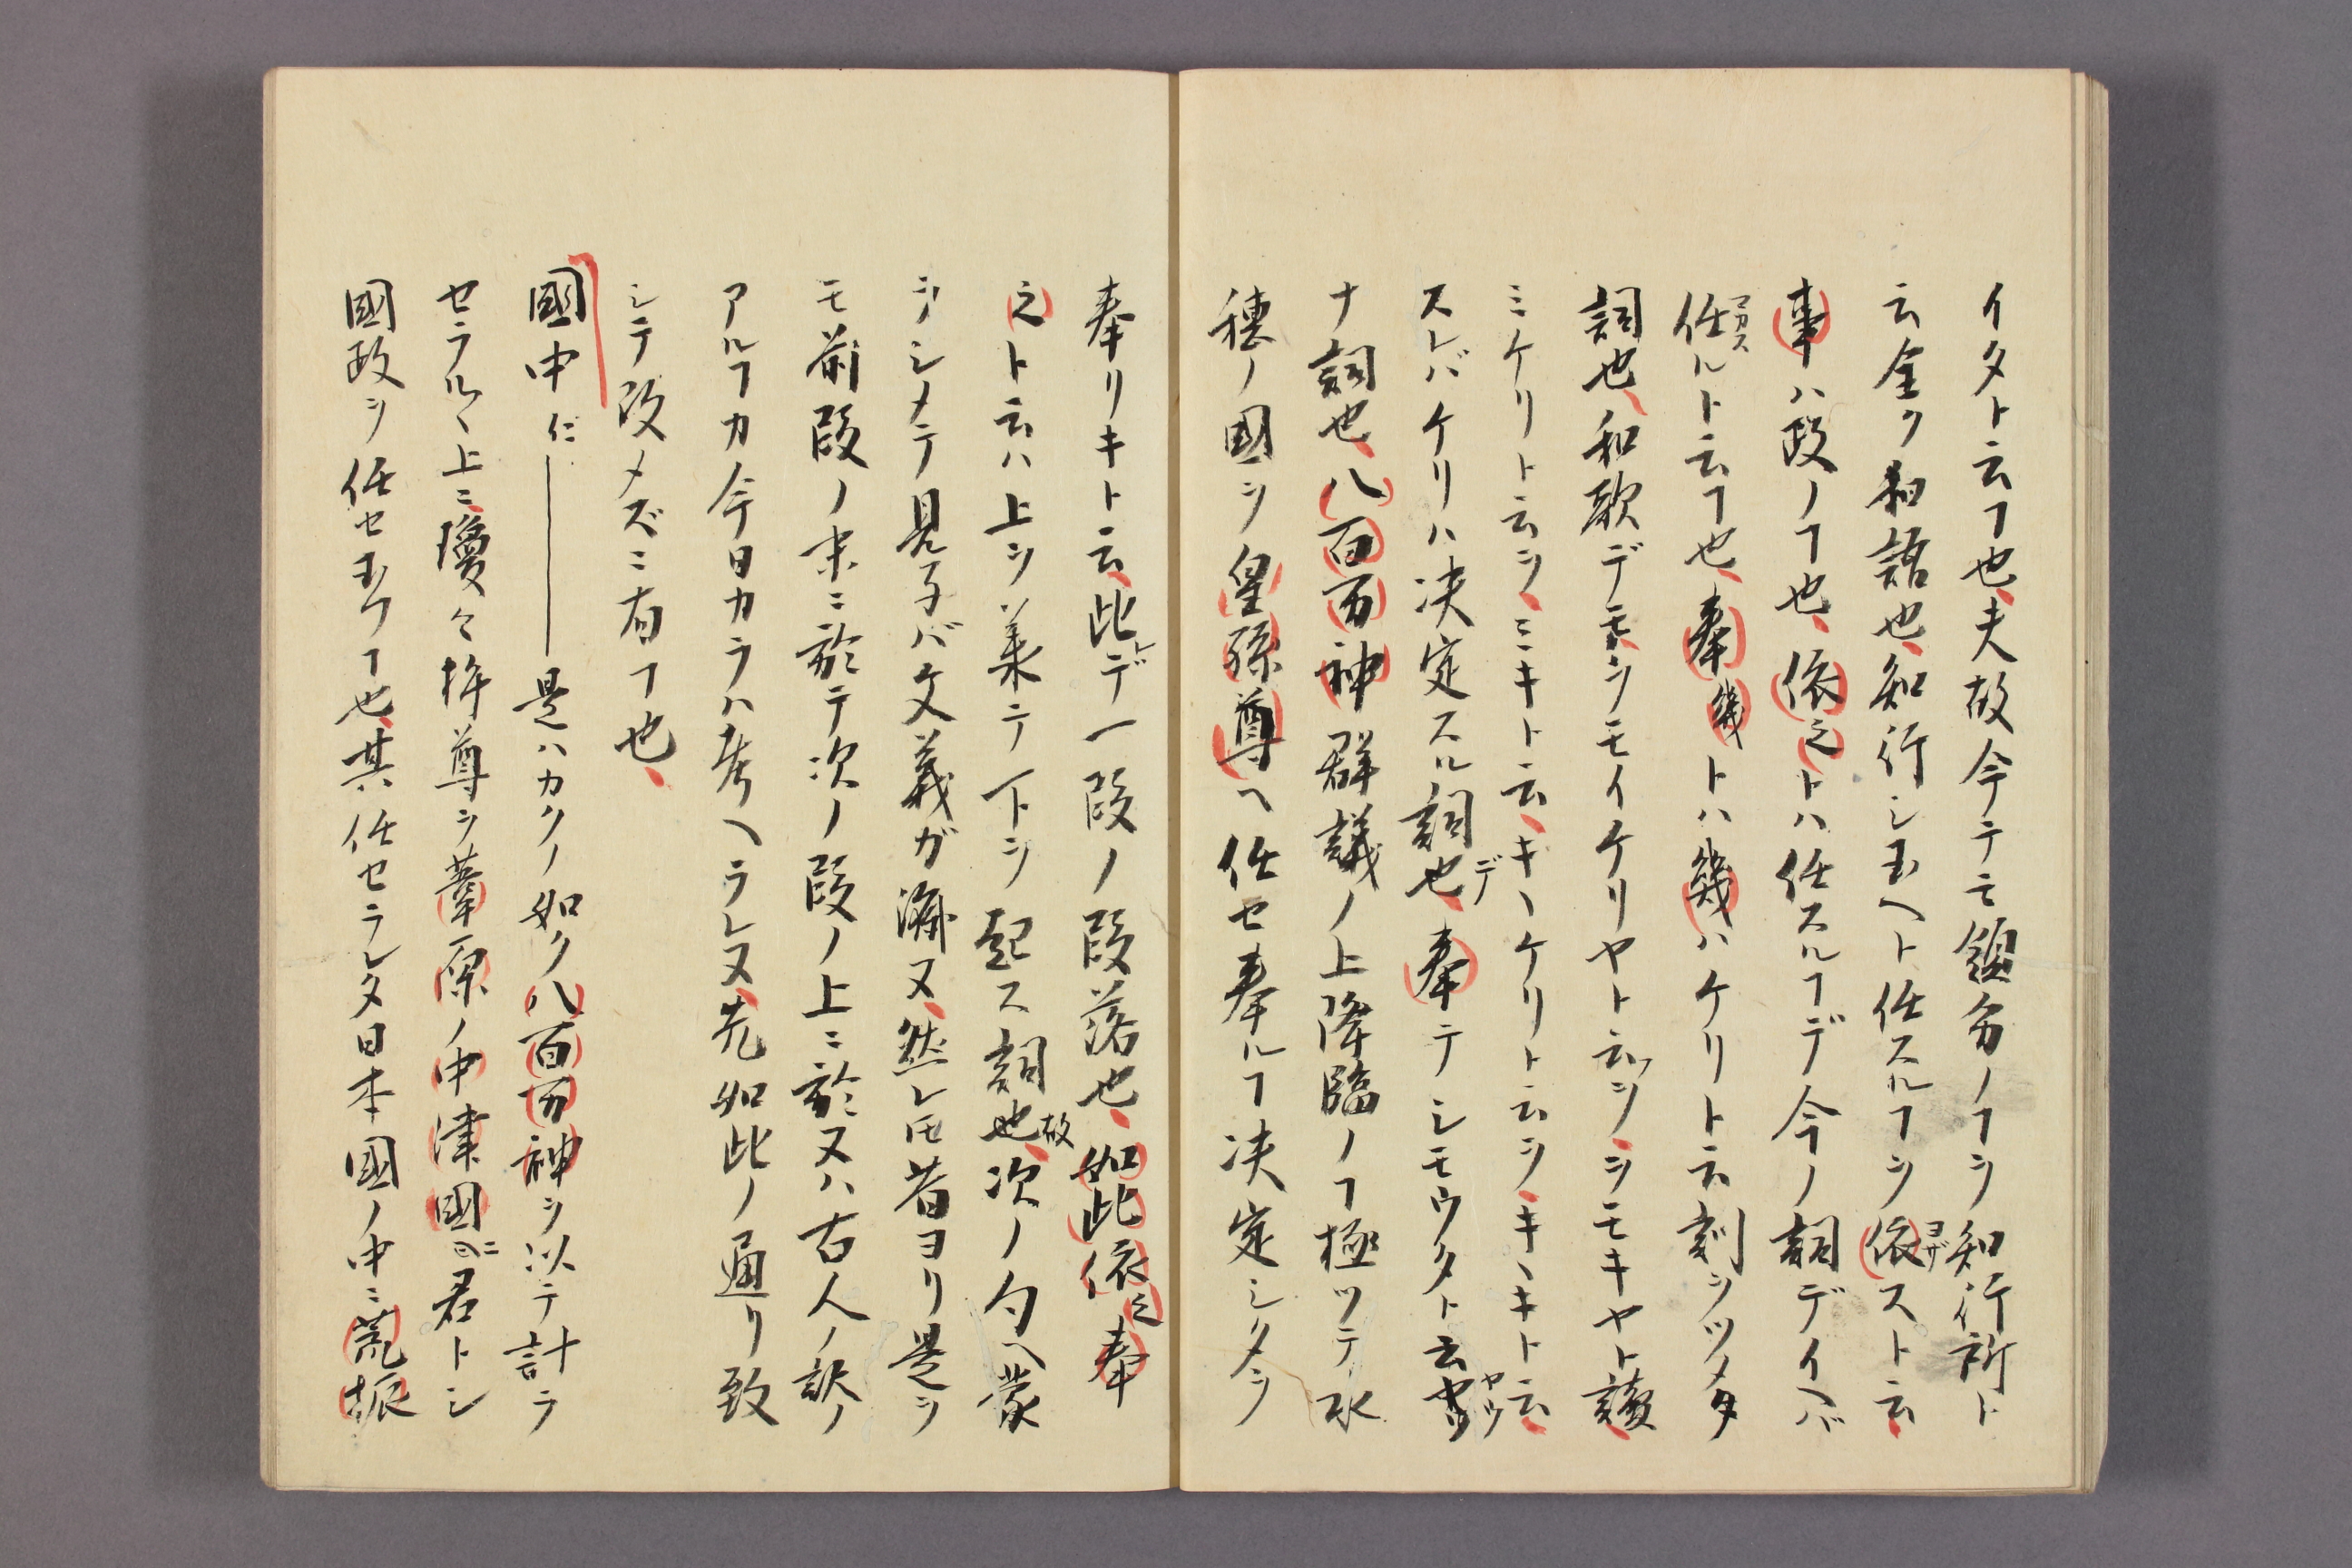 イタト云フ也、夫故今テモ領分ノヿヲ知行所ト
云全ク和語也、知行シ玉ヘト任スルヿヲ依ヨザスト云、
事ハ政ノヿ也、依之トハ任スルヿデ今ノ詞デイヘバ
任マカスルト云ヿ也、奉幾トハ幾ハケリト云刻ヲツメタ
詞也、和歌デモヲシモイケリヤト云ヲ、ヲシモキヤト讀、
ミケリト云ヲ、ミキト云、キヽケリト云ヲ、キヽキト云、
スレバケリハ决定スル詞也デ、奉テシモウタト云ヤウ
ナ詞也、八百万神群議ノ上降臨ノヿ極ツテ水
穂ノ國ヲ皇孫尊ヘ任セ奉ルヿ决定シタヲ
奉リキト云、此トデ一段ノ段落也、如此依之奉
之ト云ハ上ヲ羕テ下ヲ起ス詞也、故次ノ句ヘ蒙
ラシメテ見子バ文義ガ濟ヌ、然レ𪜈昔ヨリ是ヲ
モ前段ノ末ニ於テ次ノ段ノ上ニ於ヌハ古人ノ誤ノ
アルヿカ今日カラハ考ヘラレヌ、先如此ノ通リ致
シテ改メズニ有ヿ也、
國中仁――是ハカクノ如ク八百万神ヲ以テ計ラ
セラルヽ上ニ瓊々杵尊ヲ葦原ノ中津國ノ君トシ
國政ヲ任セ玉フヿ也、其任セラレタ日本國ノ中ニ荒振